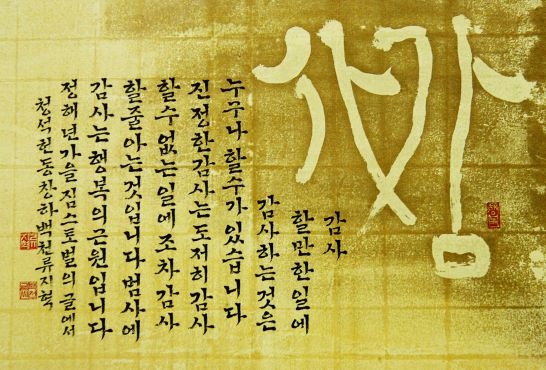 감사
감사
할만한일에
감사하는것은
누구나할수가있습니다
진정한감사는도저히감사
할수없는일에조차감사
할줄아는것입니다범사에
감사는행복의근원입니다
정해년가을짐스토벌의글에서
청석헌동창하백천류지혁